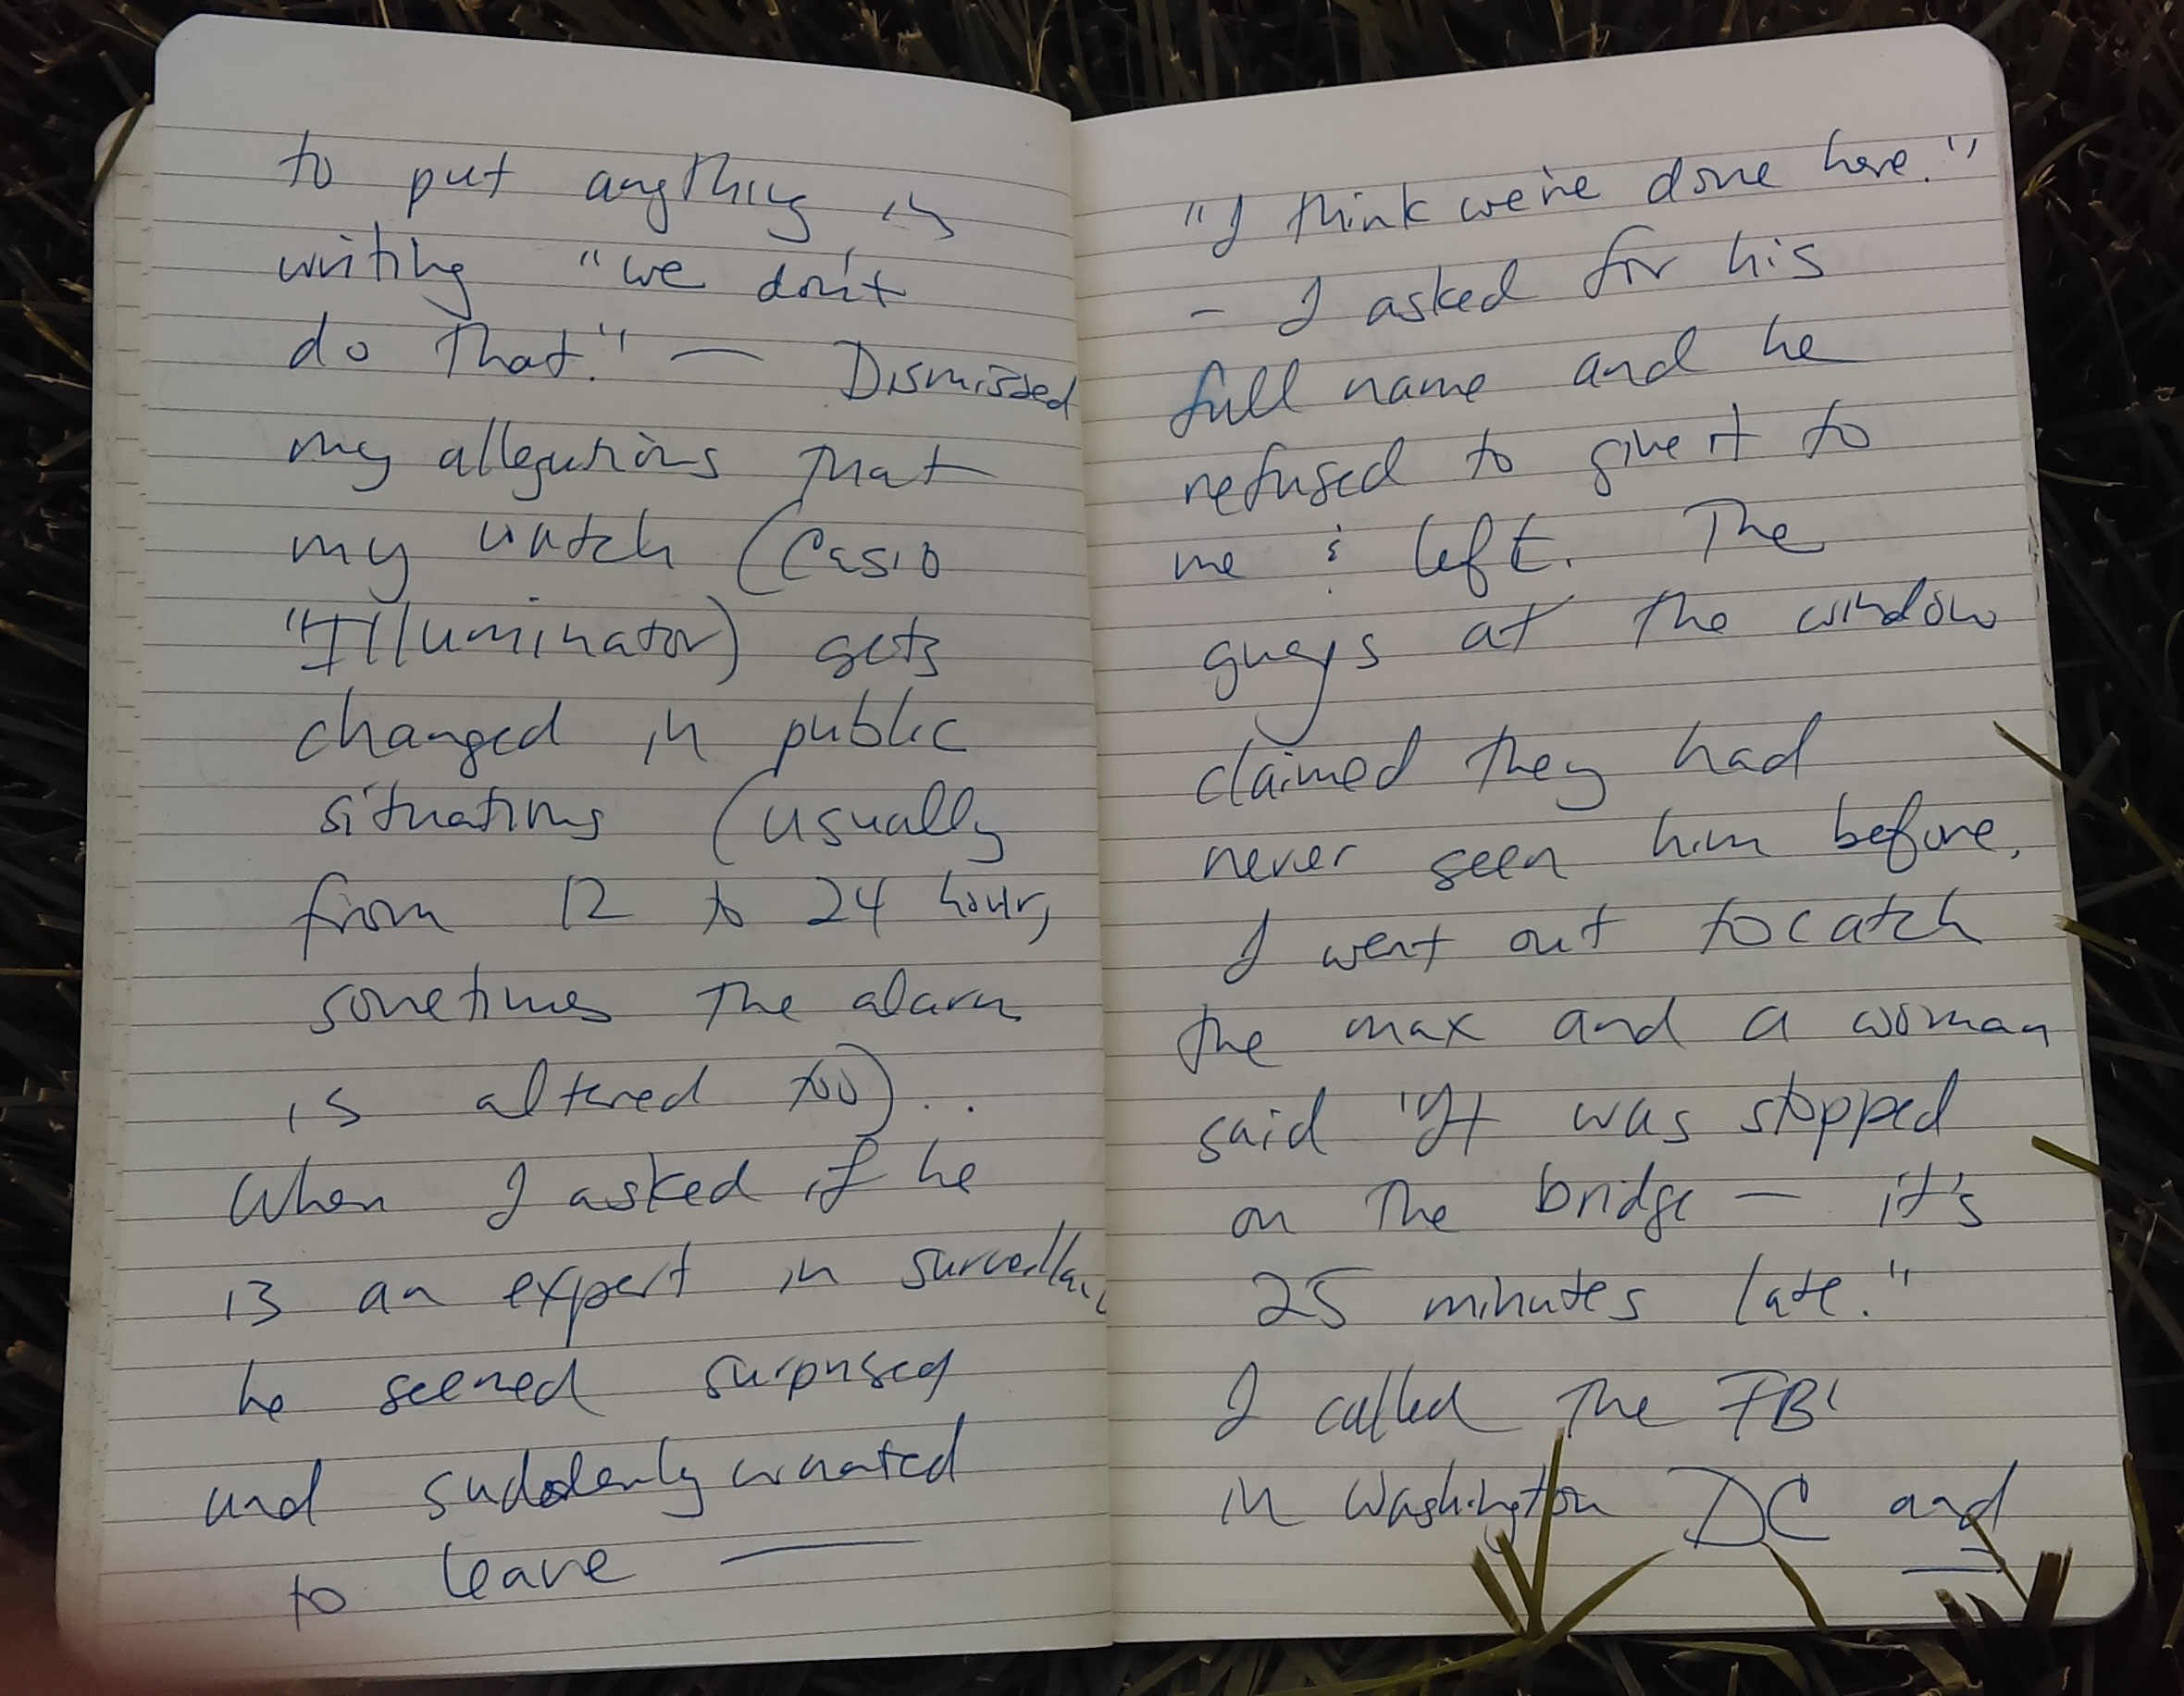 to put anything in
writing "we don't
do that." — Dismissed
my allegations that
my watch (Casio
"Illuminator) gets
changed in public
situations (usually
from 12 to 24 hour,
sometimes the alarm
is altered too)...
When I asked if he
is an expert in surveillanc
he seemed surprised
and suddenly wanted
to leave —
"I think we're done here."
- I asked for his
full name and he
refused to give it to
me & left. The
guys at the window
claimed they had
never seen him before.
I went out to catch
the max and a woman
said "It was stopped
on the bridge — it's
25 minutes late."
I called the FBI
in Washington DC and